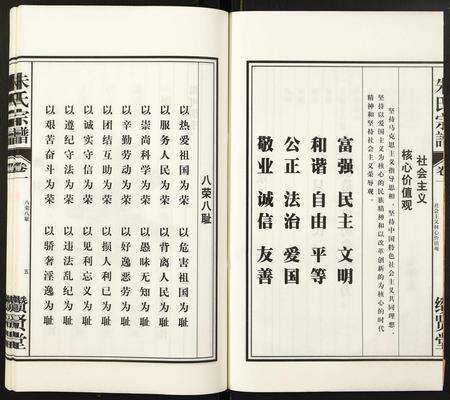 朱氏宗譜
卷一
社会主义核心价值观
缵贤堂
社会主义
核心价值观
坚持马克思主义指导思想，坚持中国特色社会主义共同理想，
坚持以爱国主义为核心的民族精神和以改革创新的为核心的时代
精神和坚持社会主义荣辱观。
富强 民主 文明
和谐 自由 平等
公正 法治 爱国
敬业 诚信 友善
八荣八耻
以热爱祖国为荣 以危害祖国为耻
以服务人民为荣 以背离人民为耻
以崇尚科学为荣 以愚昧无知为耻
以辛勤劳动为荣 以好逸恶劳为耻
以团结互助为荣 以损人利己为耻
以诚实守信为荣 以见利忘义为耻
以遵纪守法为荣 以违法乱纪为耻
以艰苦奋斗为荣 以骄奢淫逸为耻
朱氏宗譜
卷一
八荣八耻
五
缵贤堂